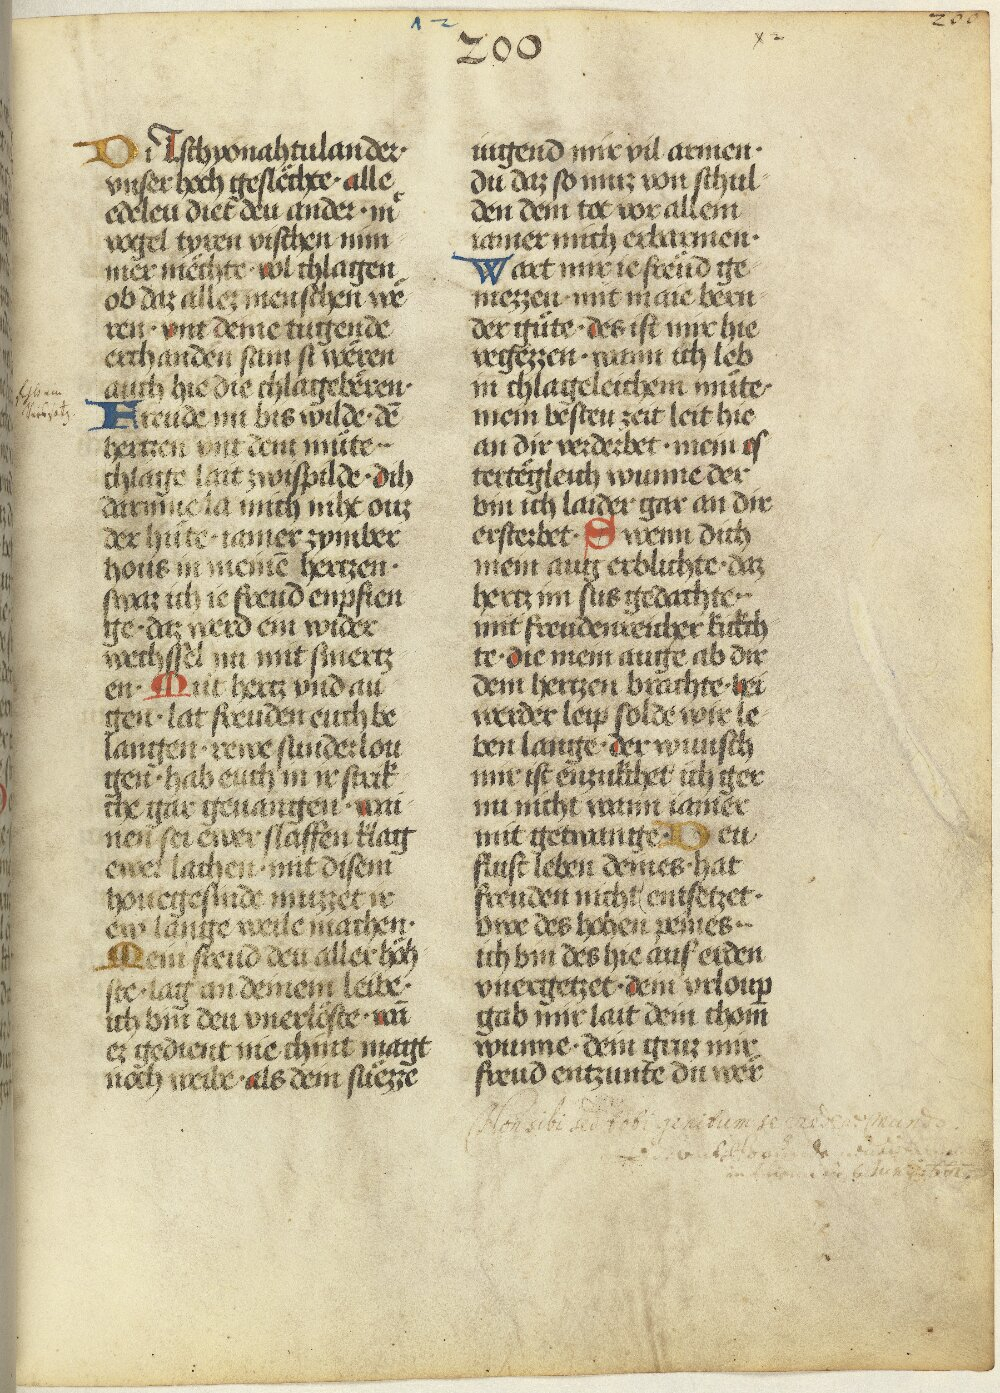 200
200
Di Tschyonahtulander·
vnser hoch geslechte· alle
edeleu diet deu ander· in
vogel tyren vischen nim
mer mechte· vol chlagen
ob daz allez menschen we
ren· vnt deine tugende
erchanden sam si weren
auch hie die chlageberen·
Freude nu bis wilde· de
hertzen vnt dem müte··
chlage lait zwispilde· dih
darinne la mich niht ouz
der hüte· iamer zymber
hous in meinē hertzen·
swaz ich ie freud enpfien
ge· daz werd ein wider
wechssel nu mit smertz
en· Mit hertz vnd au
gen· lat freuden euch be
langen· rewe sunder lou
gen· hab euch in ir strik
che gar geuangen· wai
nen sei ewer slaffen klag
ewer lachen· mit disem
houegesinde muzzet ir
ew lange weile machen·
Mein freud deu aller höh
ste· lag an deinem leibe·
ich bin deu vnerlöste· wā
ez gedient nie chint magt
noch weibe· als dem süezze
iugend mir vil armen·
du daz so muz von schul
den dem tot vor allem
iamer mich erbarmen·
Wart mir ie freud ge
mezzen· mit maie bern
der güte· des ist mir hie
vergezzen· wann ich leb
in chlageleichem müte·
mein besteu zeit leit hie
an dir verderbet· mein os
tertegleich wunne der
bin ich laider gar an dir
ersterbet· Swenn dich
mein aug erblichte· daz
hertz im sus gedachte··
mit freudenreicher kukch
te· die mein auge ab dir
dem hertzen brachte· bei
werder leip solde wir le
ben lange· der wunsch
mir ist enzukchet ich ger
nu nicht wann iamer
mit getwange· Deu
flust leben deines· hat
freuden nicht entsetzet·
vwe des hohen reines··
ich bin des hie auf erden
vnergetzet· dem vrloup
gab mir lait dein chom̄
wunne· dem gruz mir
freud entzunte du wer
Non sibi sed toti genitum se credere mundo.